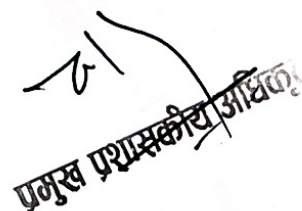 प्रमुख प्रशासकीय अधिकृ